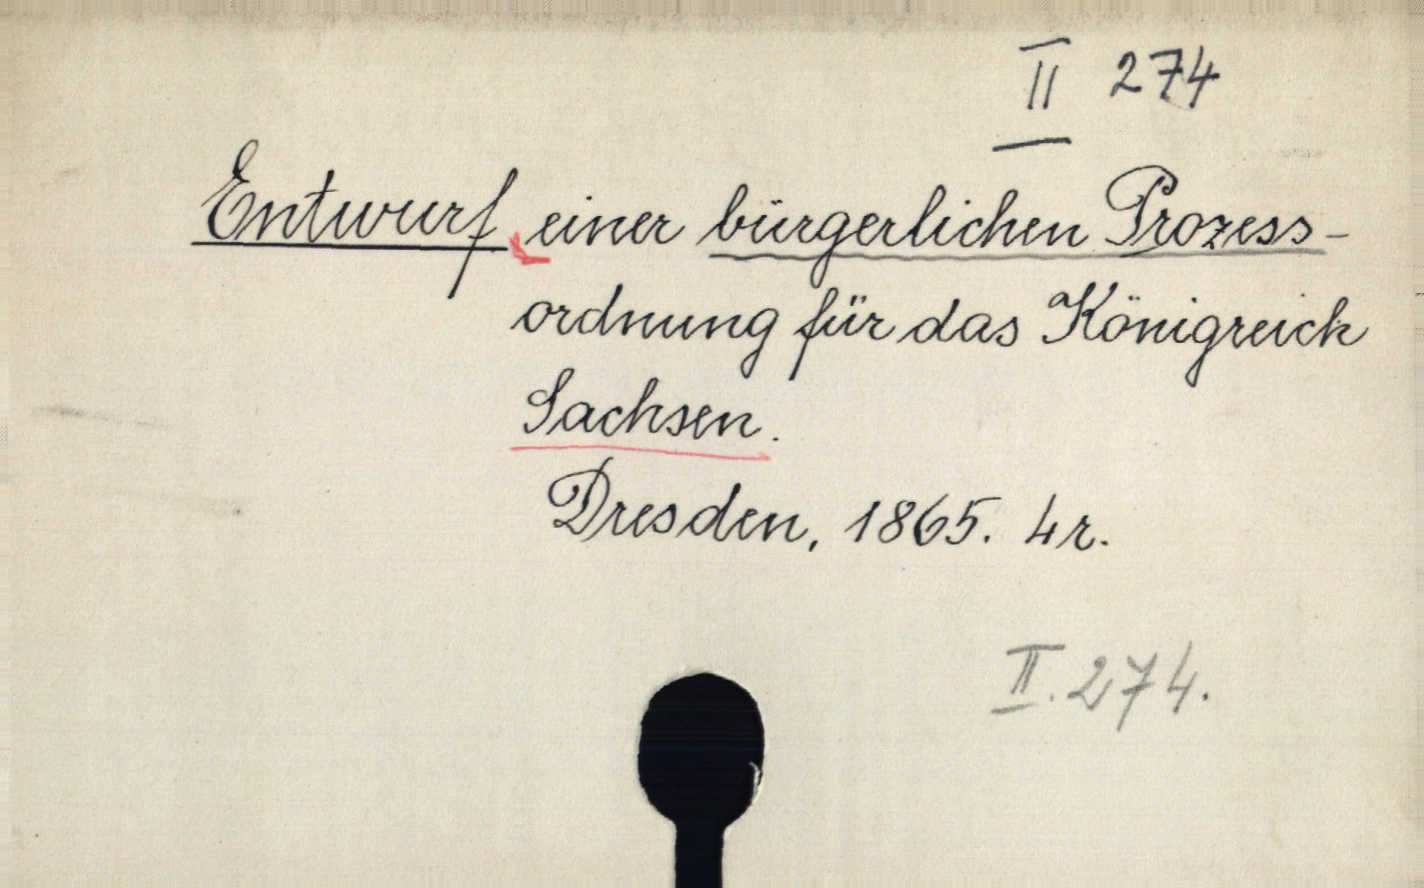 II 274
Entwurf einer bürgerlichen Prozess-
ordnung für das Königreich
Sachsen.
Dresden, 1865. 4r.
II. 274.